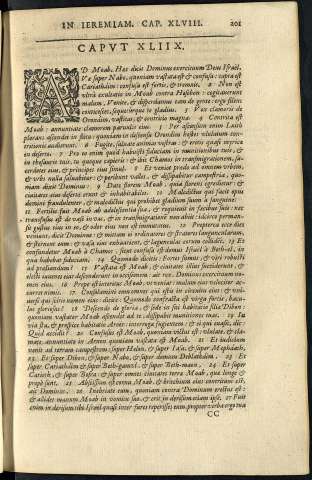 IN IEREMIAM. CAP. XLVIII. 201
CAPVT XLIIX.
AD Moab. Hæc dicit Dominus exercituum Deus Israël.
Væ super Nabo, quoniam vastata est & confusa: capta est
Cariathaim: confusa est fortis, & tremuit. 2 Non est
vltrà exultatio in Moab contra Hesebon: cogitauerunt
malum, Venite, & disperdamus eam de gente: ergo silens
conticesces, sequeturque te gladius. 3 Vox clamoris de
Oronaim, vastitas, & contritio magna. 4 Contrita est
Moab: annuntiate clamorem paruulis eius. 5 Per ascensum enim Luith
plorans ascendet in fletu: quoniam in descensu Oronaim hostes vlulatum con-
tritionis audierunt. 6 Fugite, saluate animas vestras: & eritis quasi myrica
in deserto. 7 Pro eo enim quod habuisti fiduciam in munitionibus tuis, &
in thesauris tuis, tu quoque capieris: & ibit Chamos in transmigrationem, sa-
cerdotes eius, & principes eius simul. 8 Et veniet prædo ad omnem vrbem,
& vrbs nulla saluabitur: & peribunt valles, & dissipabuntur campestria, quo-
niam dixit Dominus: 9 Date florem Moab, quia florens egredietur: &
ciuitates eius desertæ erunt & inhabitabiles. 10 Maledictus qui facit opus
domini fraudulenter, & maledictus qui prohibet gladium suum à sanguine.
11 Fertilis fuit Moab ab adolescentia sua, & requieuit in fæcibus suis: nec
transfusus est de vase in vas, & in transmigrationem non abiit: idcirco perman-
sit gustus eius in eo, & odor eius non est immutatus. 12 Propterea ecce dies
veniunt, dicit Dominus: & mittam ei ordinatores & stratores laguncularum,
& sternent eum: & vasa eius exhaurient, & lagunculas eorum collident. 13 Et
confundetur Moab à Chamos, sicut confusa est domus Israël à Beth-el, in
qua habebat fiduciam. 14 Quomodo dicitis: Fortes sumus, & viri robusti
ad præliandum? 15 Vastata est Moab, & ciuitates illius succiderunt, &
electi iuuenes eius descenderunt in occisionem: ait rex, Dominus exercituum no-
men eius. 16 Prope est interitus Moab, vt veniat: malum eius velociter ac-
curret nimis. 17 Consolamini eum omnes qui estis in circuitu eius: & vni-
uersi qui scitis nomen eius, dicite: Quomodo confracta est virga fortis, bacu-
lus gloriosus? 18 Descende de gloria, & sede in siti habitatio filiæ Dibon:
quoniam vastator Moab ascendit ad te, dissipabit munitiones tuas. 19 In
via sta, & prospice habitatio Aroër: interroga fugientem: & ei qui euasit, dic:
Quid accidit? 20 Confusus est Moab, quoniam victus est: vlulate, & cla-
mate, annuntiate in Arnon quoniam vastata est Moab. 21 Et iudicium
venit ad terram campestrem: super Helon, & super Iasa, & super Mephaath,
22 Et super Dibon, & super Nabo, & super domum Deblathaim, 23 Et
super Cariathaim & super Beth-gamul, & super Beth-maon, 24 Et super
Carioth, & super Bosra: & super omnes ciuitates terræ Moab, quæ longè &
propè sunt. 25 Abscissum est cornu Moab, & brachium eius contritum est,
ait Dominus. 26 Inebriate eum, quoniam contra Dominum erectus est:
& allidet manum Moab in vomitu suo, & erit in derisum etiam ipse. 27 Fuit
enim in derisum tibi Israël quasi inter fures reperisses eum: propter verba ergo tua
CC